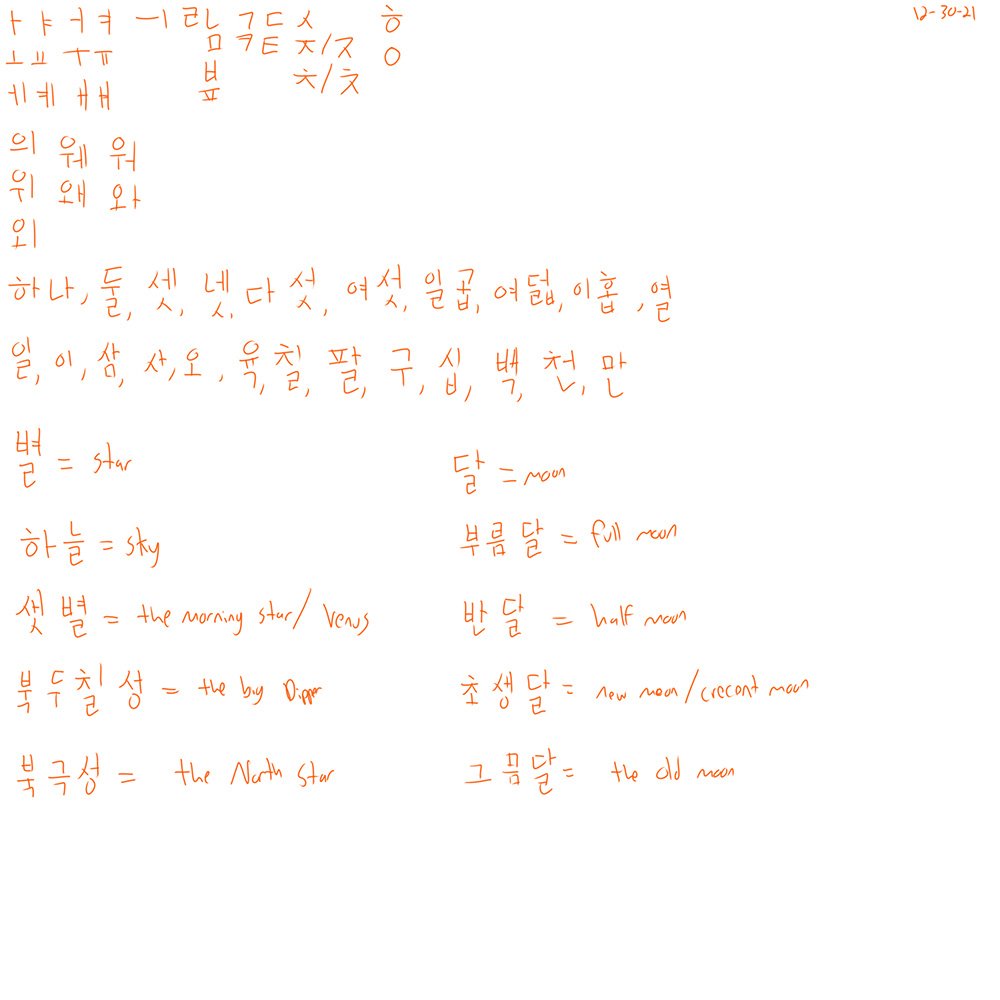 12-30-21
ㅏ ㅑ ㅓ ㅕ ㅡ ㅣ ㄹ ㄴ ㄱ ㄷ ㅅ ㅎ
ㅗ ㅛ ㅜ ㅠ ㅁ ㅋ ㅌ ㅈ/ㅈ ㅇ
ㅔ ㅖ ㅐ ㅒ ㅂ ㅍ ㅊ/ㅊ
의 웨 워
위 왜 와
외
하나, 둘, 셋, 넷, 다섯, 여섯, 일곱, 여덟, 이홉, 열
일, 이, 삼, 사, 오, 육, 칠, 팔, 구, 십, 백, 천, 만
별 = star
하늘 = sky
샛별 = the morning star/Venus
북두칠성 = the big Dipper
북극성 = the North star
달 = moon
부름달 = full moon
반달 = half moon
초생달 = new moon/crecent moon
그믐달 = the old moon